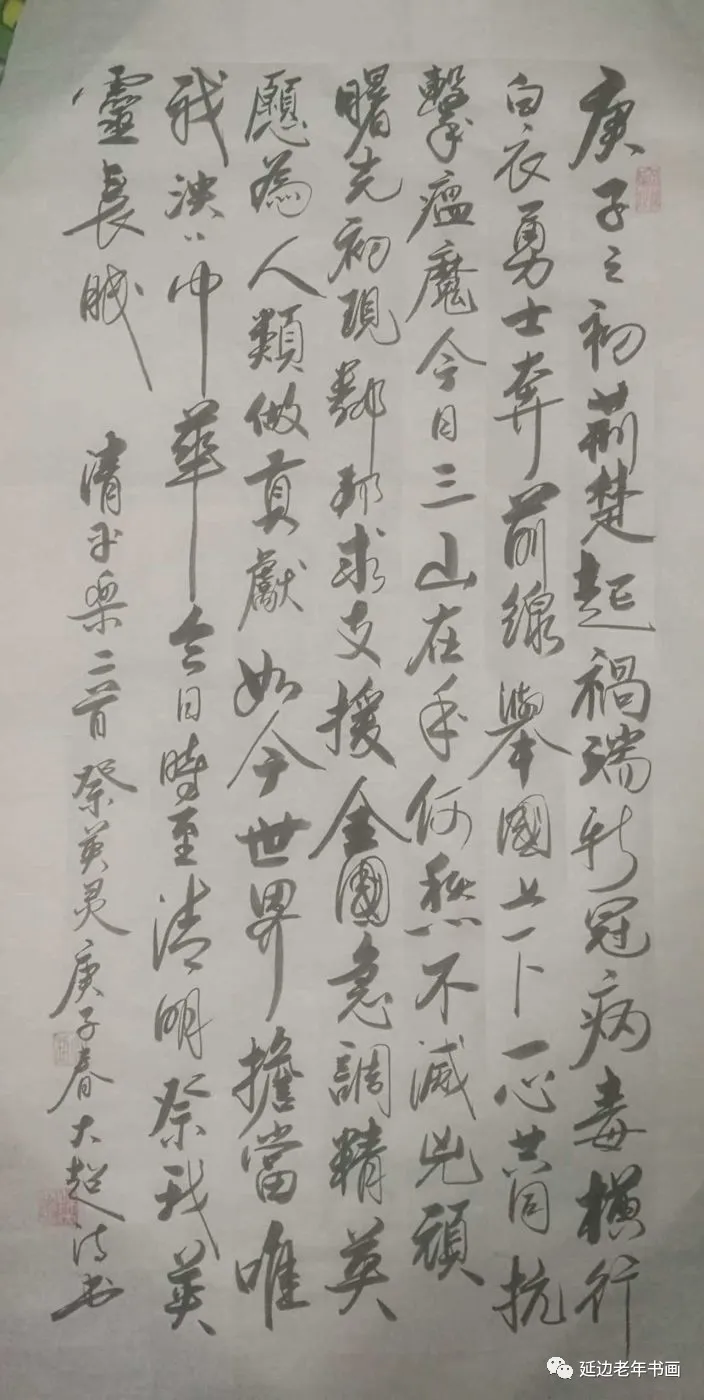 庚子之初荆楚起禍端新冠病毒橫行
白衣勇士奔前線舉國上下一心共同抗
擊瘟魔今日三山在手何愁不滅兇頑
曙光初現鄰邦求支援全國急調精英
願為人類做貢獻如今世界擔當唯
我泱〻中華今日時至清明祭我英
靈長眠
清平樂二首祭英灵庚子春大超诗书
延边老年书画